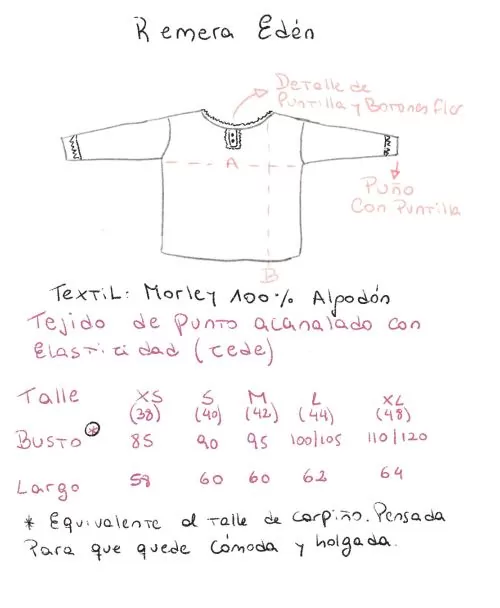 Remera Edén
Detalle de
Puntilla y Botones Flor
A
Puño
Con Puntilla
B
Textil: Morley 100% Algodón
Tejido de punto acanalado con
Elasticidad (cede)
Talle XS S M L XL
(38) (40) (42) (44) (48)
Busto* 85 90 95 100/105 110/120
Largo 58 60 60 62 64
* Equivalente al talle de corpiño. Pensada
Para que quede Cómoda y holgada.